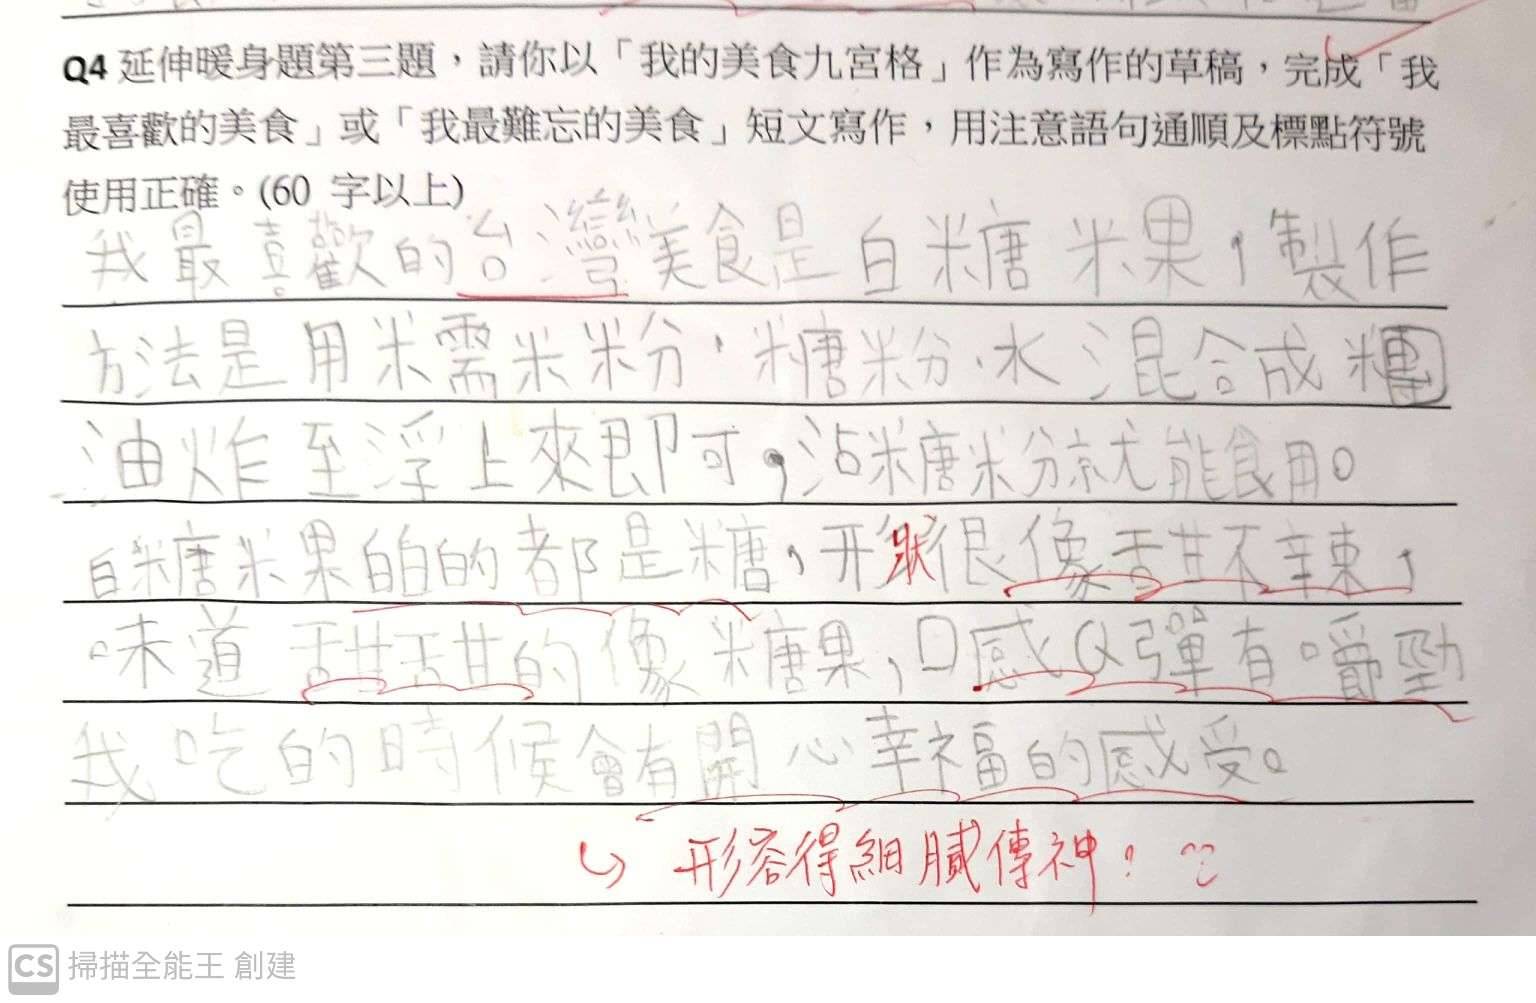 Q4 延伸暖身題第三題，請你以「我的美食九宮格」作為寫作的草稿，完成「我
最喜歡的美食」或「我最難忘的美食」短文寫作，用注意語句通順及標點符號
使用正確。(60 字以上)
我最喜歡的台灣美食是白糖粿，製作
方法是用糯米粉、糖粉、水混合成糰
油炸至浮上來即可，沾糖粉就能食用。
白糖粿白白的都是糖，形狀很像甜不辣，
味道甜甜的像糖果，口感Q彈有嚼勁
我吃的時候會有開心幸福的感受。
形容得細膩傳神！
CS 掃描全能王 創建